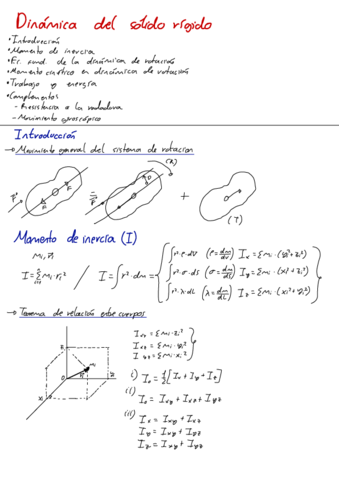 Dinámica del sólido rígido
• Introducción
• Momento de inercia
• Ec. fund. de la dinámica de rotación
• Momento cinético en dinámica de rotación
• Trabajo y energía
• Complementos
- Resistencia a la rodadura
- Movimiento giroscópico
Introducción
→ Movimiento general del sistema de rotación
(R)
+
(T)
Momento de inercia (I)
mi, ri
I = Σ mi · ri² / I = ∫ r² · dm =
∫ r² · ρ · dV (ρ = dm/dV) Ix = Σ mi · (yi² + zi²)
∫ r² · σ · dS (σ = dm/dS) Iy = Σ mi · (xi² + zi²)
∫ r² · λ · dL (λ = dm/dL) Iz = Σ mi · (xi² + yi²)
→ Teorema de relación entre cuerpos
Ixy = Σ mi · zi²
Ixz = Σ mi · yi²
Iyz = Σ mi · xi²
i) Io = 1/2 [Ix + Iy + Iz]
ii) Io = Ixy + Ixz + Iyz
iii)
Ix = Ixy + Ixz
Iy = Ixy + Iyz
Iz = Ixz + Iyz